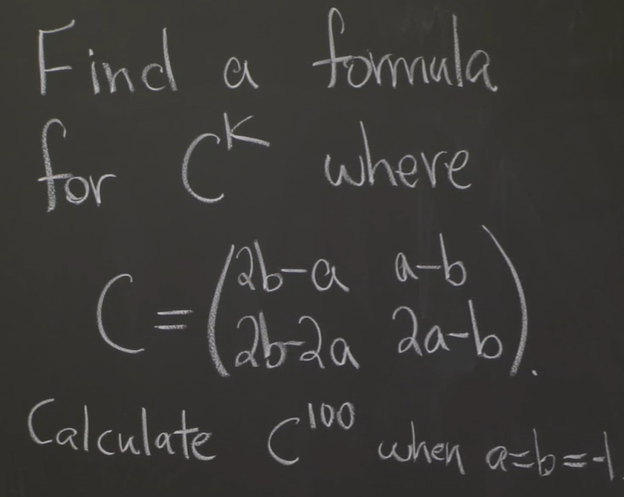 Find a formula
for C^k where
C = (2b-a a-b
2b-2a 2a-b).
Calculate C^100 when a=b=-1